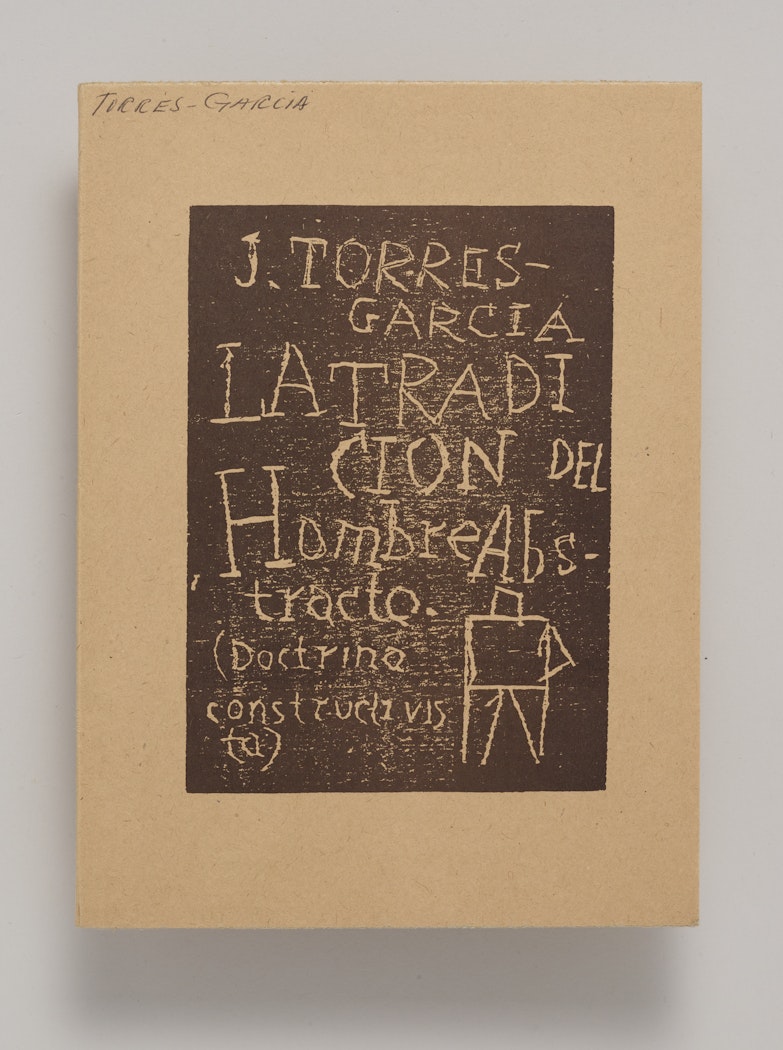 TORRES-GARCIA
J. TORRES-
GARCIA
LA TRADI
CION DEL
Hombre Abs-
tracto.
(Doctrina
constructivis
ta)